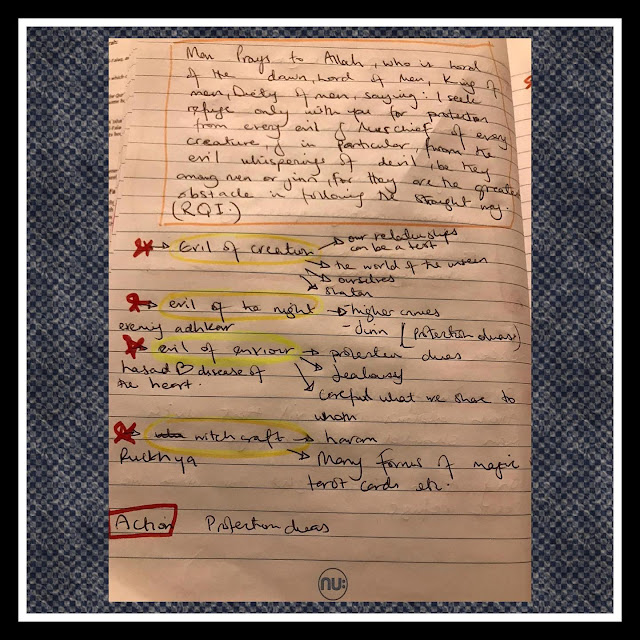 Man Prays to Allah, who is Lord
of the dawn, Lord of Men, King of
men, Diety of men, saying: I seek
refuge only with you for protection
from every evil & Mischief of every
creature, & in particular, from the
evil whisperings of devil, be they
among men or jinn, for they are the greatest
obstacle in following the straight way.
(RQI.)
→ Evil of creation → our relationships
can be a test
→ the world of the unseen
→ ourselves
→ Shatan
→ evil of the night → - higher crimes
evening adhkar - Jinn [protection duas]
→ evil of enviour → protection duas
hasad disease of → Jealousy
the heart. → Careful what we share to
whom
→ witch craft → haram
Rukhya → Many forms of magic
tarot cards etc.
Action Protection duas
nu: